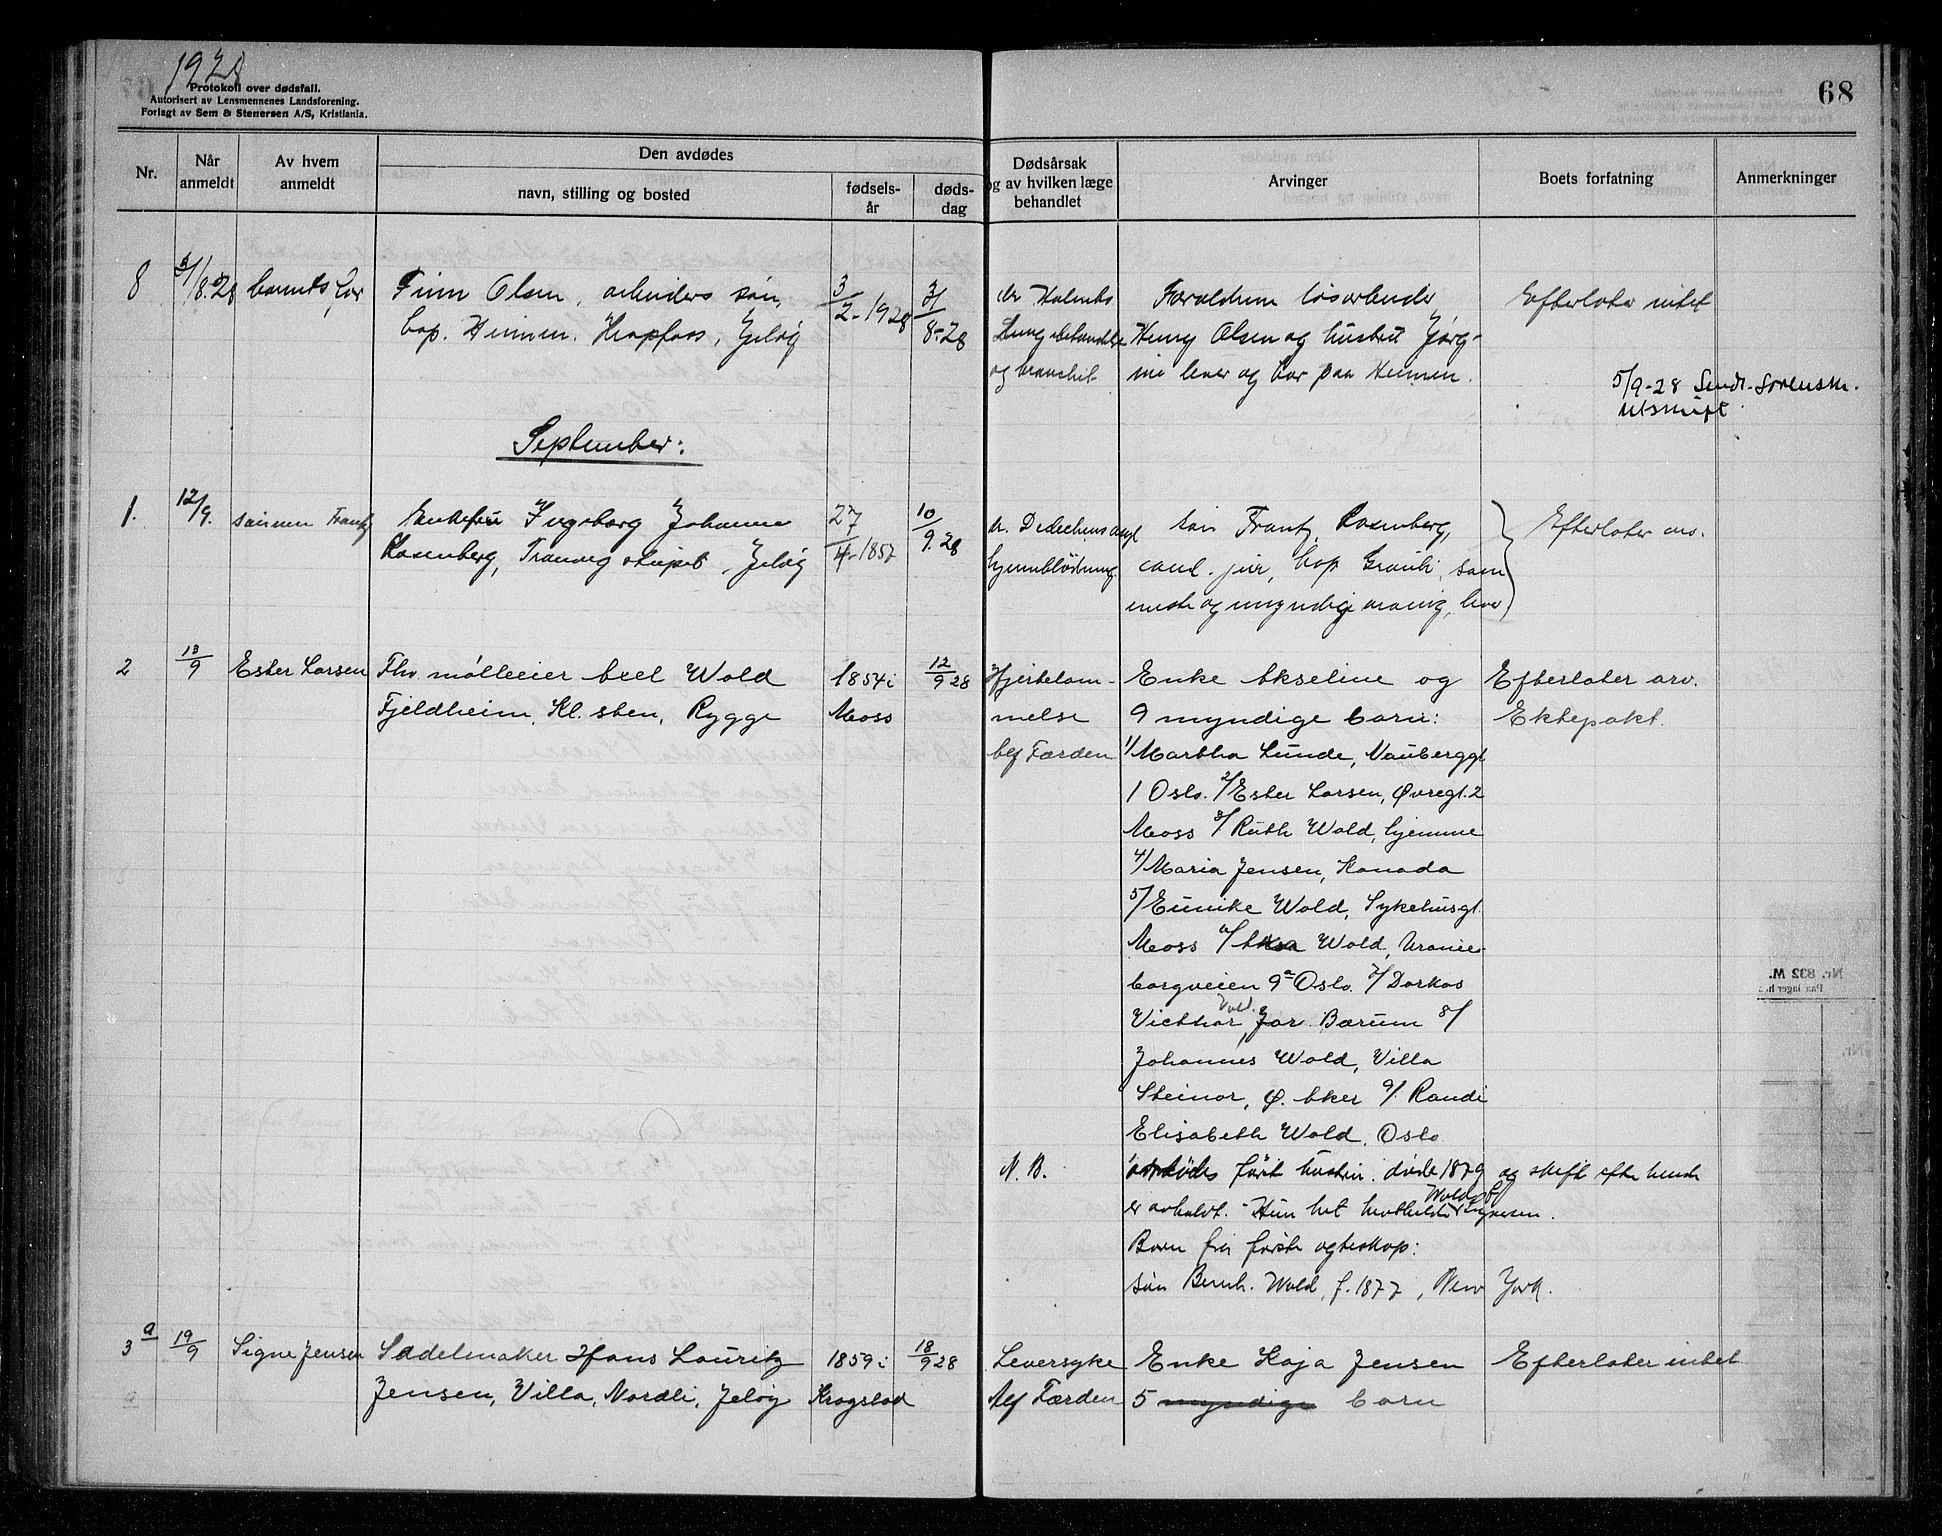 1928
Protokoll over dødsfall.
Autorisert av Lensmennenes Landsforening.
Forlagt av Sem & Stenersen A/S, Kristiania.
68
Nr.
Når anmeldt
Av hvem anmeldt
Den avdødes
navn, stilling og bosted
fødsels-år
døds-dag
Dødsårsak og av hvilken læge behandlet
Arvinger
Boets forfatning
Anmerkninger
8 /8.28 barnets far
Finn Olsen, arbeiders søn,
bop. Heimen, Krapfoss, Jeløy
3/2-1928
3/8-28
dr Holmts
og bronchit
Forældrene løsarbeider
Henry Olsen og hustru Jørg-
ine lever og bor paa Heimen.
Efterlater intet
5/9-28 Sendt Sorenskr.
utskrift
September:
1. 12/9. sønnen Frantz
Enkefru Ingeborg Johanne
Rosenberg, Tranveg, Jeløy
27/4-1857
10/9.28
dr. Dedechens asyl
hjerneblødning
søn Frantz Rosenberg,
cand. jur, bop. som
eneste og myndige arving, lever
Efterlater arv.
2 13/9 Ester Larsen
Fhv. mølleeier Axel Wold
Fjeldheim, Kl. sten, Rygge
1854 i
Moss
12/9 28
Hjertelam-
melse
Alf Færden
Enke Akseline og
9 myndige barn:
1/ Martha Lunde, Vauberggt
1 Oslo. 2/ Ester Larsen, Øvregt. 2
Moss 3/ Ruth Wold, hjemme
4/ Maria Jensen, Kanada
5/ Eunike Wold, Sykehusgt.
Moss 6/ Aksa Wold, Uranien-
borgveien 9a Oslo. 7/ Dorkas
Wicthor Wold, Jar. Bærum 8/
Johannes Wold, Villa
Steinar, Ø. Aker 9/ Randi
Elisabeth Wold, Oslo
Efterlater arv.
Ektepakt.
N. B.
avdødes først hustru døde 1879 og skift efter hende
er avholdt. - Hun het Wold
Barn fra første egteskap:
søn Bernh. Wold, f. 1877, New York.
3 a 19/9 Signe Jensen
Sadelmaker Hans Lauritz
Jensen, Villa, Nordli, Jeløy
1859 i
Kragstad
18/9 28
Leversyke
Alf Færden
Enke Kaja Jensen
5 myndige barn
Efterlater intet
Nr. 832 M.
Paa lager h